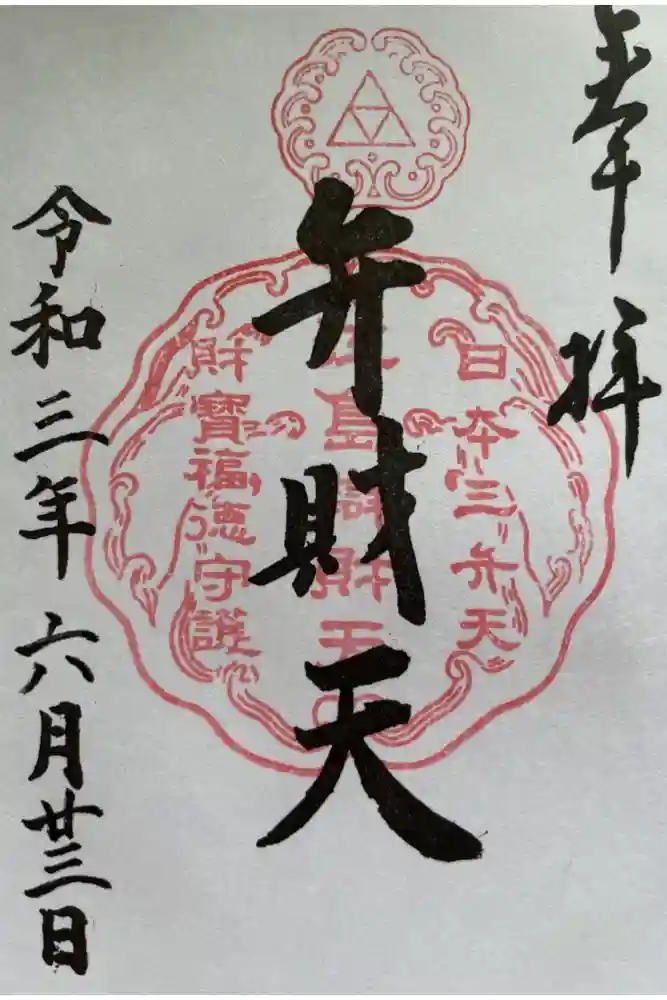 奉拝
日本三弁天
弁財天
財寶福徳守護
令和三年六月廿三日